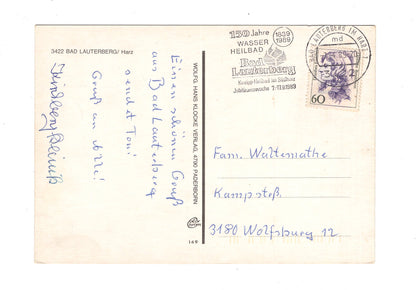 3422 BAD LAUTERBERG/Harz
Einen schönen Gruß
aus Bad Lauterberg
sendet Toni
Gruß an Alle!
WOLFG. HANS KLOCKE VERLAG, 4790 PADERBORN
150 Jahre 1839
1989
WASSER
HEILBAD
Bad
Lauterberg
Kneipp-Heilbad im Südharz
Jubiläumswoche 7.-17.9.1989
BAD LAUTERBERG IM HARZ 1
md
60
Fam. Waltemathe
Kampstr.
3180 Wolfsburg 12